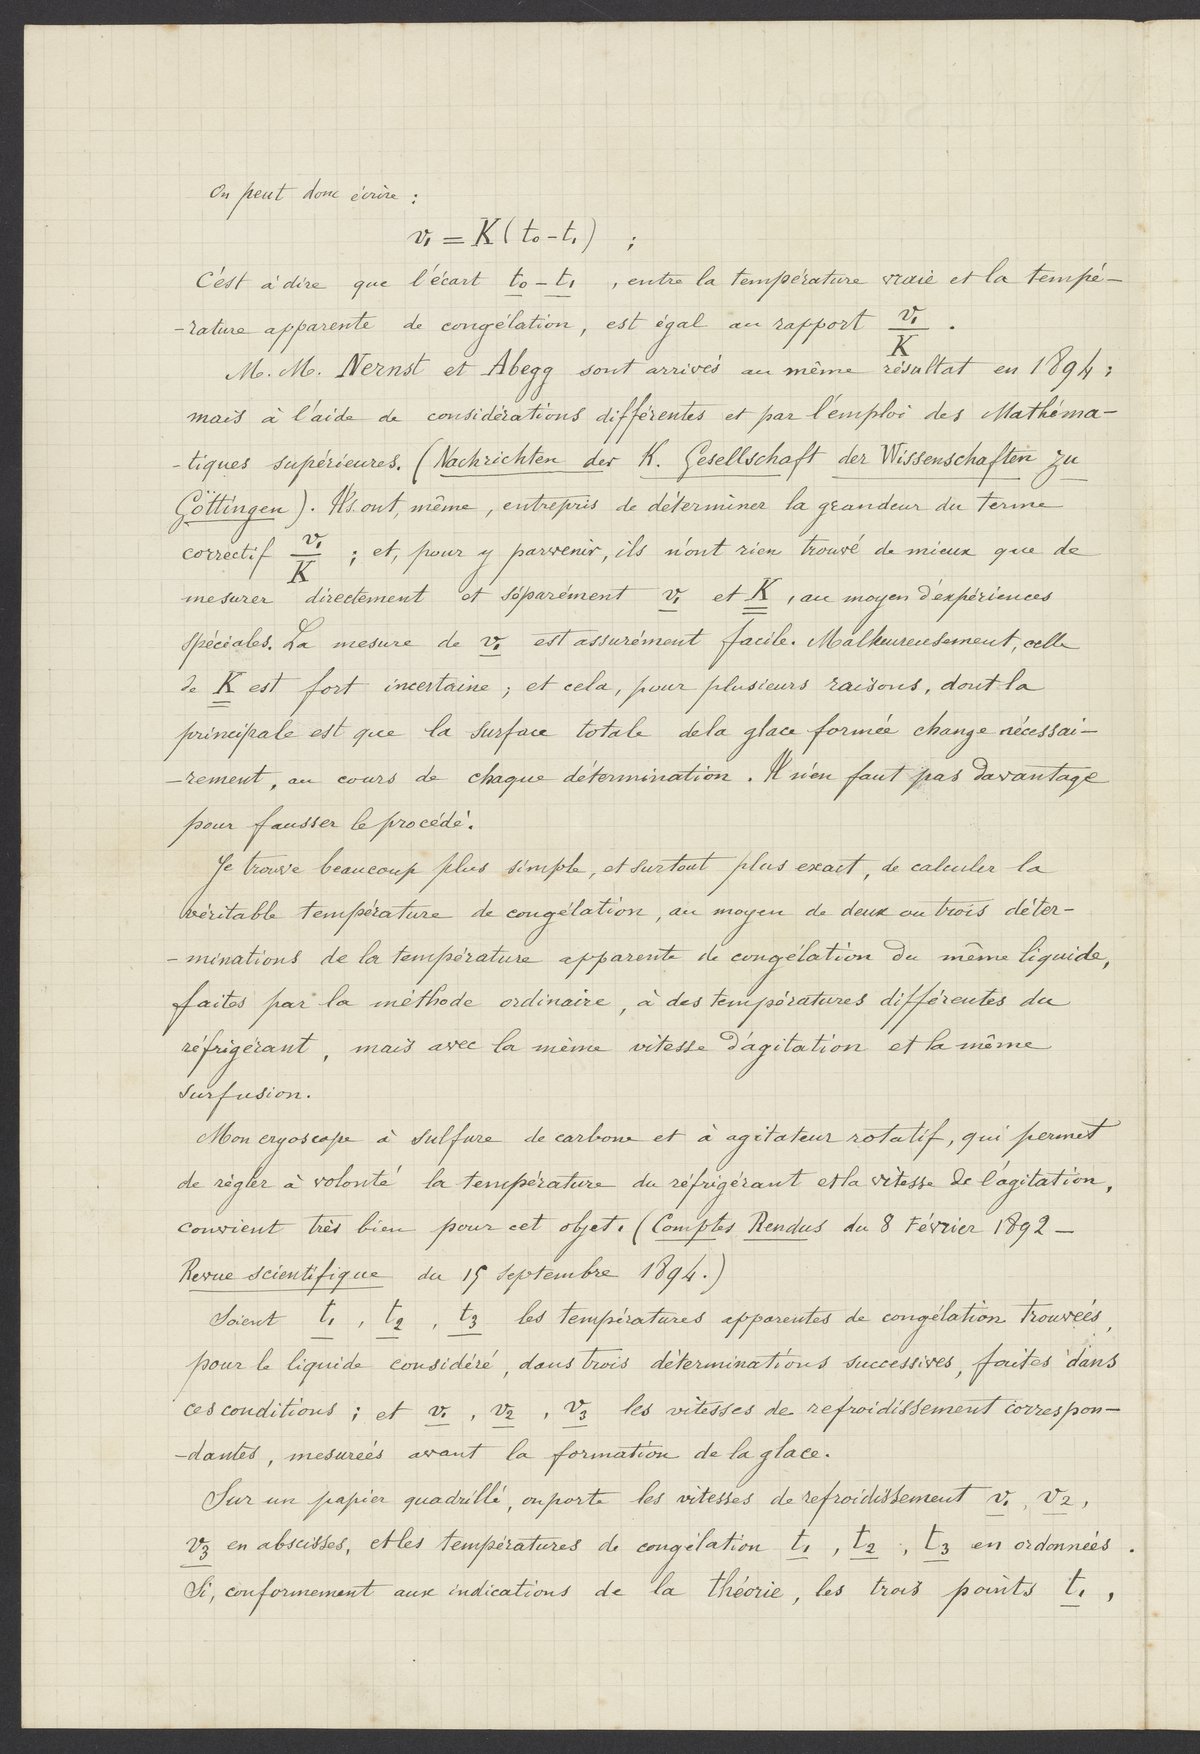 On peut donc écrire :
v₁ = K ( t₀ - t₁ ) ;
C'est à dire que l'écart t₀ - t₁ , entre la température vraie et la tempé-
-rature apparente de congélation, est égal au rapport v₁/K .
M. M. Nernst et Abegg sont arrivés au même résultat en 1894 ;
mais à l'aide de considérations différentes et par l'emploi des Mathéma-
-tiques supérieures. (Nachrichten der K. Gesellschaft der Wissenschaften zu
Göttingen). Ils ont, même, entrepris de déterminer la grandeur du terme
correctif v₁/K ; et, pour y parvenir, ils n'ont rien trouvé de mieux que de
mesurer directement et séparément v₁ et K , au moyen d'expériences
spéciales. La mesure de v₁ est assurément facile. Malheureusement, celle
de K est fort incertaine ; et cela, pour plusieurs raisons, dont la
principale est que la surface totale de la glace formée change nécessai-
-rement, au cours de chaque détermination. Il n'en faut pas davantage
pour fausser le procédé.
Je trouve beaucoup plus simple, et surtout plus exact, de calculer la
véritable température de congélation, au moyen de deux ou trois déter-
-minations de la température apparente de congélation du même liquide,
faites par la méthode ordinaire, à des températures différentes du
réfrigérant, mais avec la même vitesse d'agitation et la même
surfusion.
Mon cryoscope à sulfure de carbone et à agitateur rotatif, qui permet
de régler à volonté la température du réfrigérant et la vitesse de l'agitation,
convient très bien pour cet objet. (Comptes Rendus du 8 Février 1892 —
Revue scientifique du 15 Septembre 1894.)
Soient t₁ , t₂ , t₃ les températures apparentes de congélation trouvées,
pour le liquide considéré, dans trois déterminations successives, faites dans
ces conditions ; et v₁ , v₂ , v₃ les vitesses de refroidissement correspon-
-dantes, mesurées avant la formation de la glace.
Sur un papier quadrillé, on porte les vitesses de refroidissement v₁ , v₂ ,
v₃ en abscisses, et les températures de congélation t₁ , t₂ , t₃ en ordonnées .
Si, conformement aux indications de la théorie, les trois points t₁ ,